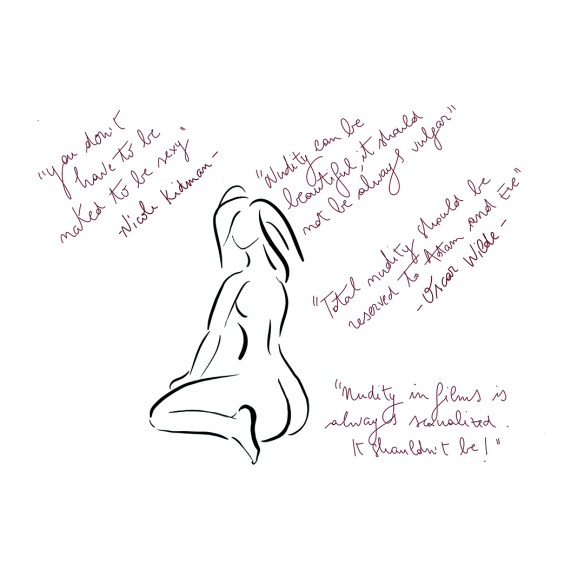 "you don't
have to be
naked to be sexy"
-Nicole Kidman-
"Nudity can be
beautiful, it should
not be always vulgar"
"Total nudity should be
reserved to Adam and Eve"
-Oscar Wilde-
"Nudity in films is
always sexualized.
It shouldn't be!"